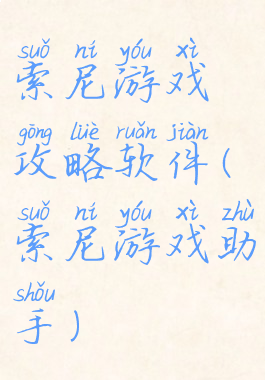 suǒ ní yóu xì
索尼游戏
gōng lüè ruǎn jiàn
攻略软件(
suǒ ní yóu xì zhù
索尼游戏助
shǒu
手)